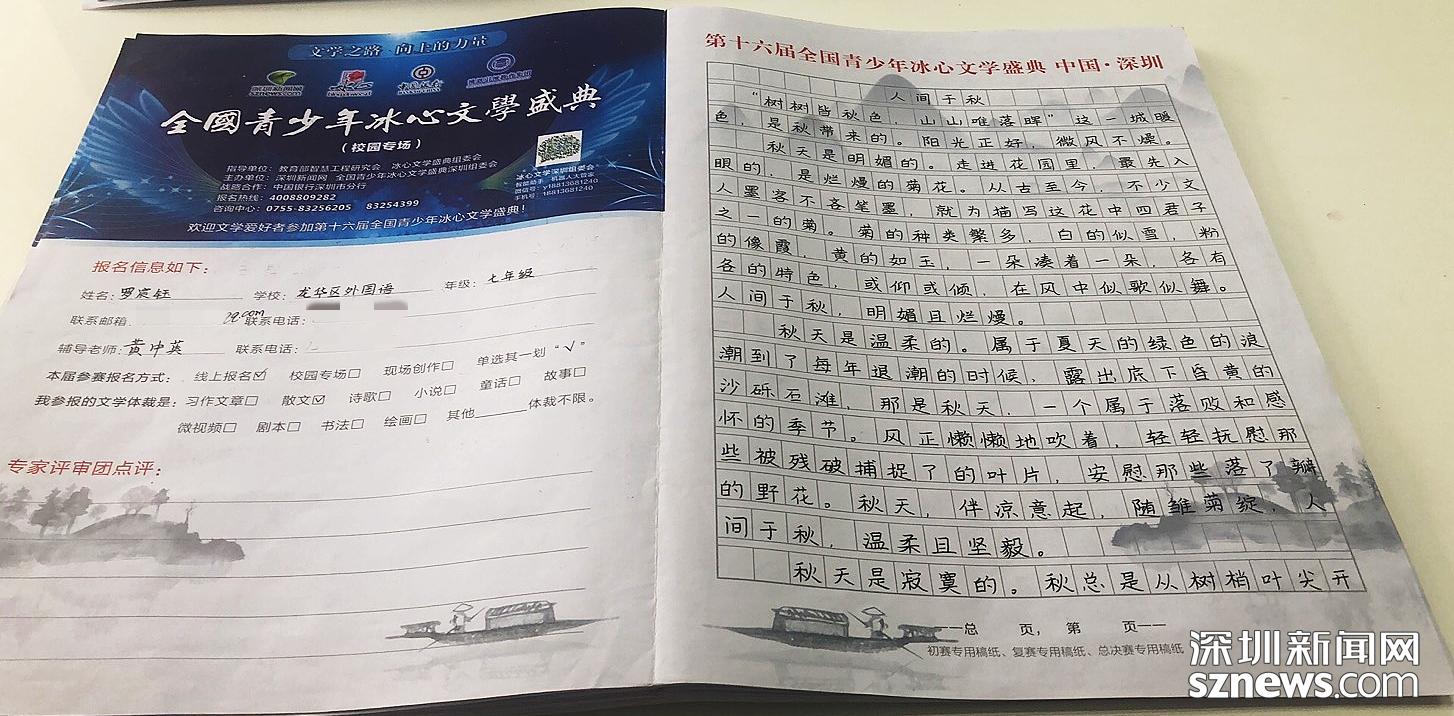 文学之路 向上的力量
深圳新闻网
中国银行
全國青少年冰心文學盛典
(校园专场)
指导单位：教育部智慧工程研究会 冰心文学盛典组委会
主办单位：深圳新闻网 全国青少年冰心文学盛典深圳组委会
战略合作：中国银行深圳市分行
报名热线：4008809282
咨询中心：0755-83256205 83254399
冰心文学深圳组委会
智能助手 机器人大管家
微信号：y18813681240
手机号：18813681240
欢迎文学爱好者参加第十六届全国青少年冰心文学盛典！
报名信息如下：
姓名：罗宸钰 学校：龙华区外国语 年级：七年级
联系邮箱： 联系电话：
辅导老师：黄中英 联系电话：
本届参赛报名方式： 线上报名☑ 校园专场□ 现场创作□ 单选其一划“√”
我参报的文学体裁是：习作文章□ 散文☑ 诗歌□ 小说□ 童话□ 故事□
微视频□ 剧本□ 书法□ 绘画□ 其他______体裁不限。
专家评审团点评：
第十六届全国青少年冰心文学盛典 中国·深圳
人间于秋
“树树皆秋色，山山唯落晖”这一城暖
色，是秋带来的。阳光正好，微风不燥。
秋天是明媚的。走进花园里，最先入
眼的，是烂熳的菊花。从古至今，不少文
人墨客不吝笔墨，就为描写这花中四君子
之一的菊。菊的种类繁多，白的似雪，粉
的像霞，黄的如玉，一朵凑着一朵，各有
各的特色，或仰或倾，在风中似歌似舞。
人间于秋，明媚且烂熳。
秋天是温柔的。属于夏天的绿色的浪
潮到了每年退潮的时候，露出底下昏黄的
沙砾石滩，那是秋天，一个属于落败和感
怀的季节。风正懒懒地吹着，轻轻抚慰那
些被残破捕捉了的叶片，安慰那些落了瓣
的野花。秋天，伴凉意起，随雏菊绽，人
间于秋，温柔且坚毅。
秋天是寂寞的。秋总是从树梢叶尖开
—总 页，第 页——
初赛专用稿纸、复赛专用稿纸、总决赛专用稿纸
深圳新闻网
sznews.com